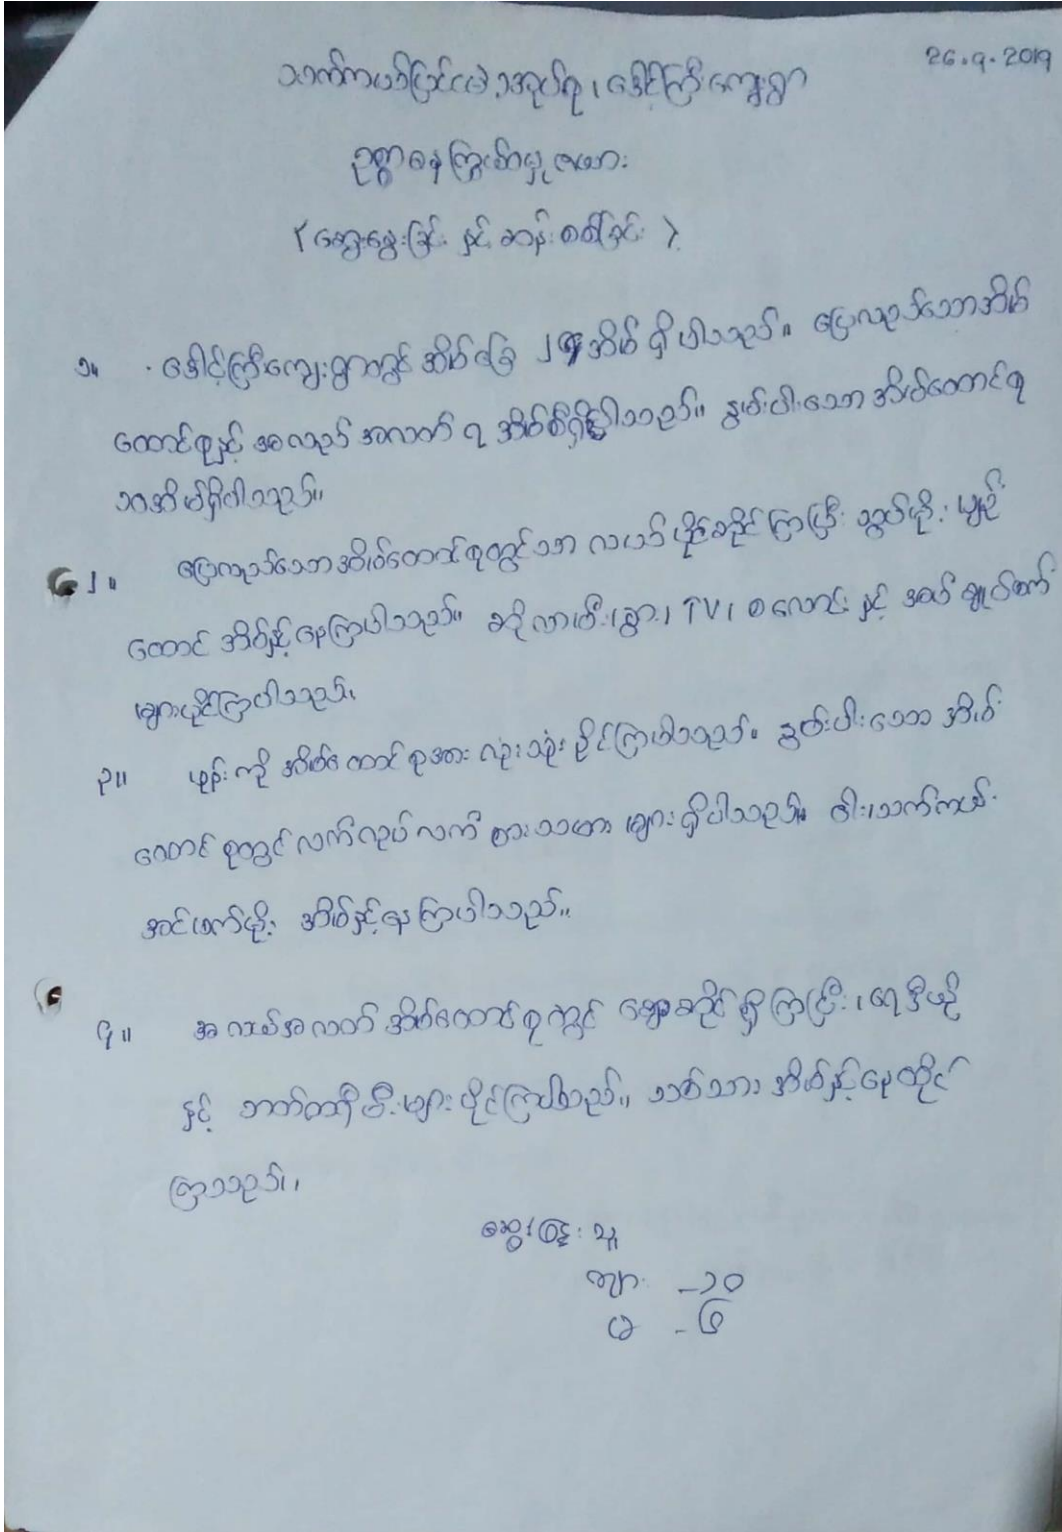 26.9.2019
သက်ကယ်ပြင် အုပ်စု၊ ဒေါင့်ကြီးကျေးရွာ
ဥစ္စာဓနကြွယ်ဝမှုဇယား
(ဆွေးနွေးခြင်း နှင့် ဆန်းစစ်ခြင်း)
၁။ ဒေါင့်ကြီးကျေးရွာတွင် အိမ်ခြေ အိမ် ရှိပါသည်။ ပြေလည်သောအိမ်
ထောင်စုနှင့် အလည်အလတ် ၇ အိမ်စီရှိပါသည်။ နွမ်းပါးသော အိမ်ထောင်စု
၁၀အိမ်ရှိပါသည်။
၂။ ပြေလည်သောအိမ်ထောင်စုတွင်သာ လယ်ပိုင်ဆိုင်ကြပြီး သွပ်မိုး၊ ပျဉ်
ထောင် အိမ်နှင့်နေကြပါသည်။ ဆိုလာမီး၊ နွား၊ TV၊ စလောင်း နှင့် အပ်ချုပ်စက်
များပိုင်ကြပါသည်။
၃။ ဖုန်းကို အိမ်ထောင်စုအားလုံးသုံးနိုင်ကြပါသည်။ နွမ်းပါးသော အိမ်
ထောင်စုတွင် လက်လုပ်လက်စားသမား များရှိပါသည်။ ဝါး၊ သက်ကယ်
အင်ဖက်မိုး အိမ်နှင့်နေကြပါသည်။
၄။ အလယ်အလတ် အိမ်ထောင်စုတွင် ရှိကြပြီး၊ ရေဒီယို
နှင့် ဘက်ထရီမီးများပိုင်ကြပါသည်။ သစ်သား အိမ်နှင့်နေထိုင်
ကြသည်။
ဆွေးနွေးသူ
ကျား - ၁၀
မ - ၆